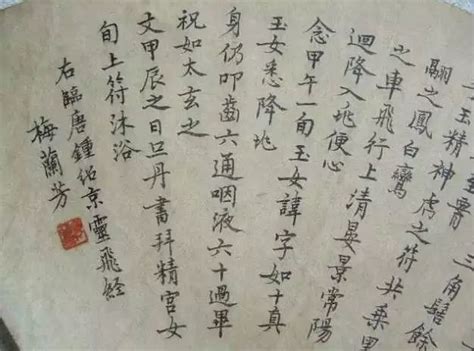 三角髻餘
玉精神虎之符共乘
翮之鳳白鸞
之車飛行上清晏景常陽
迴降入兆便心
念甲午一旬玉女諱字如十真
玉女悉降兆
身仍叩齒六通咽液六十過畢
祝如太玄之
文甲辰之日旦丹書拜精宮女
旬上符沐浴
右臨唐鍾紹京靈飛經
梅蘭芳